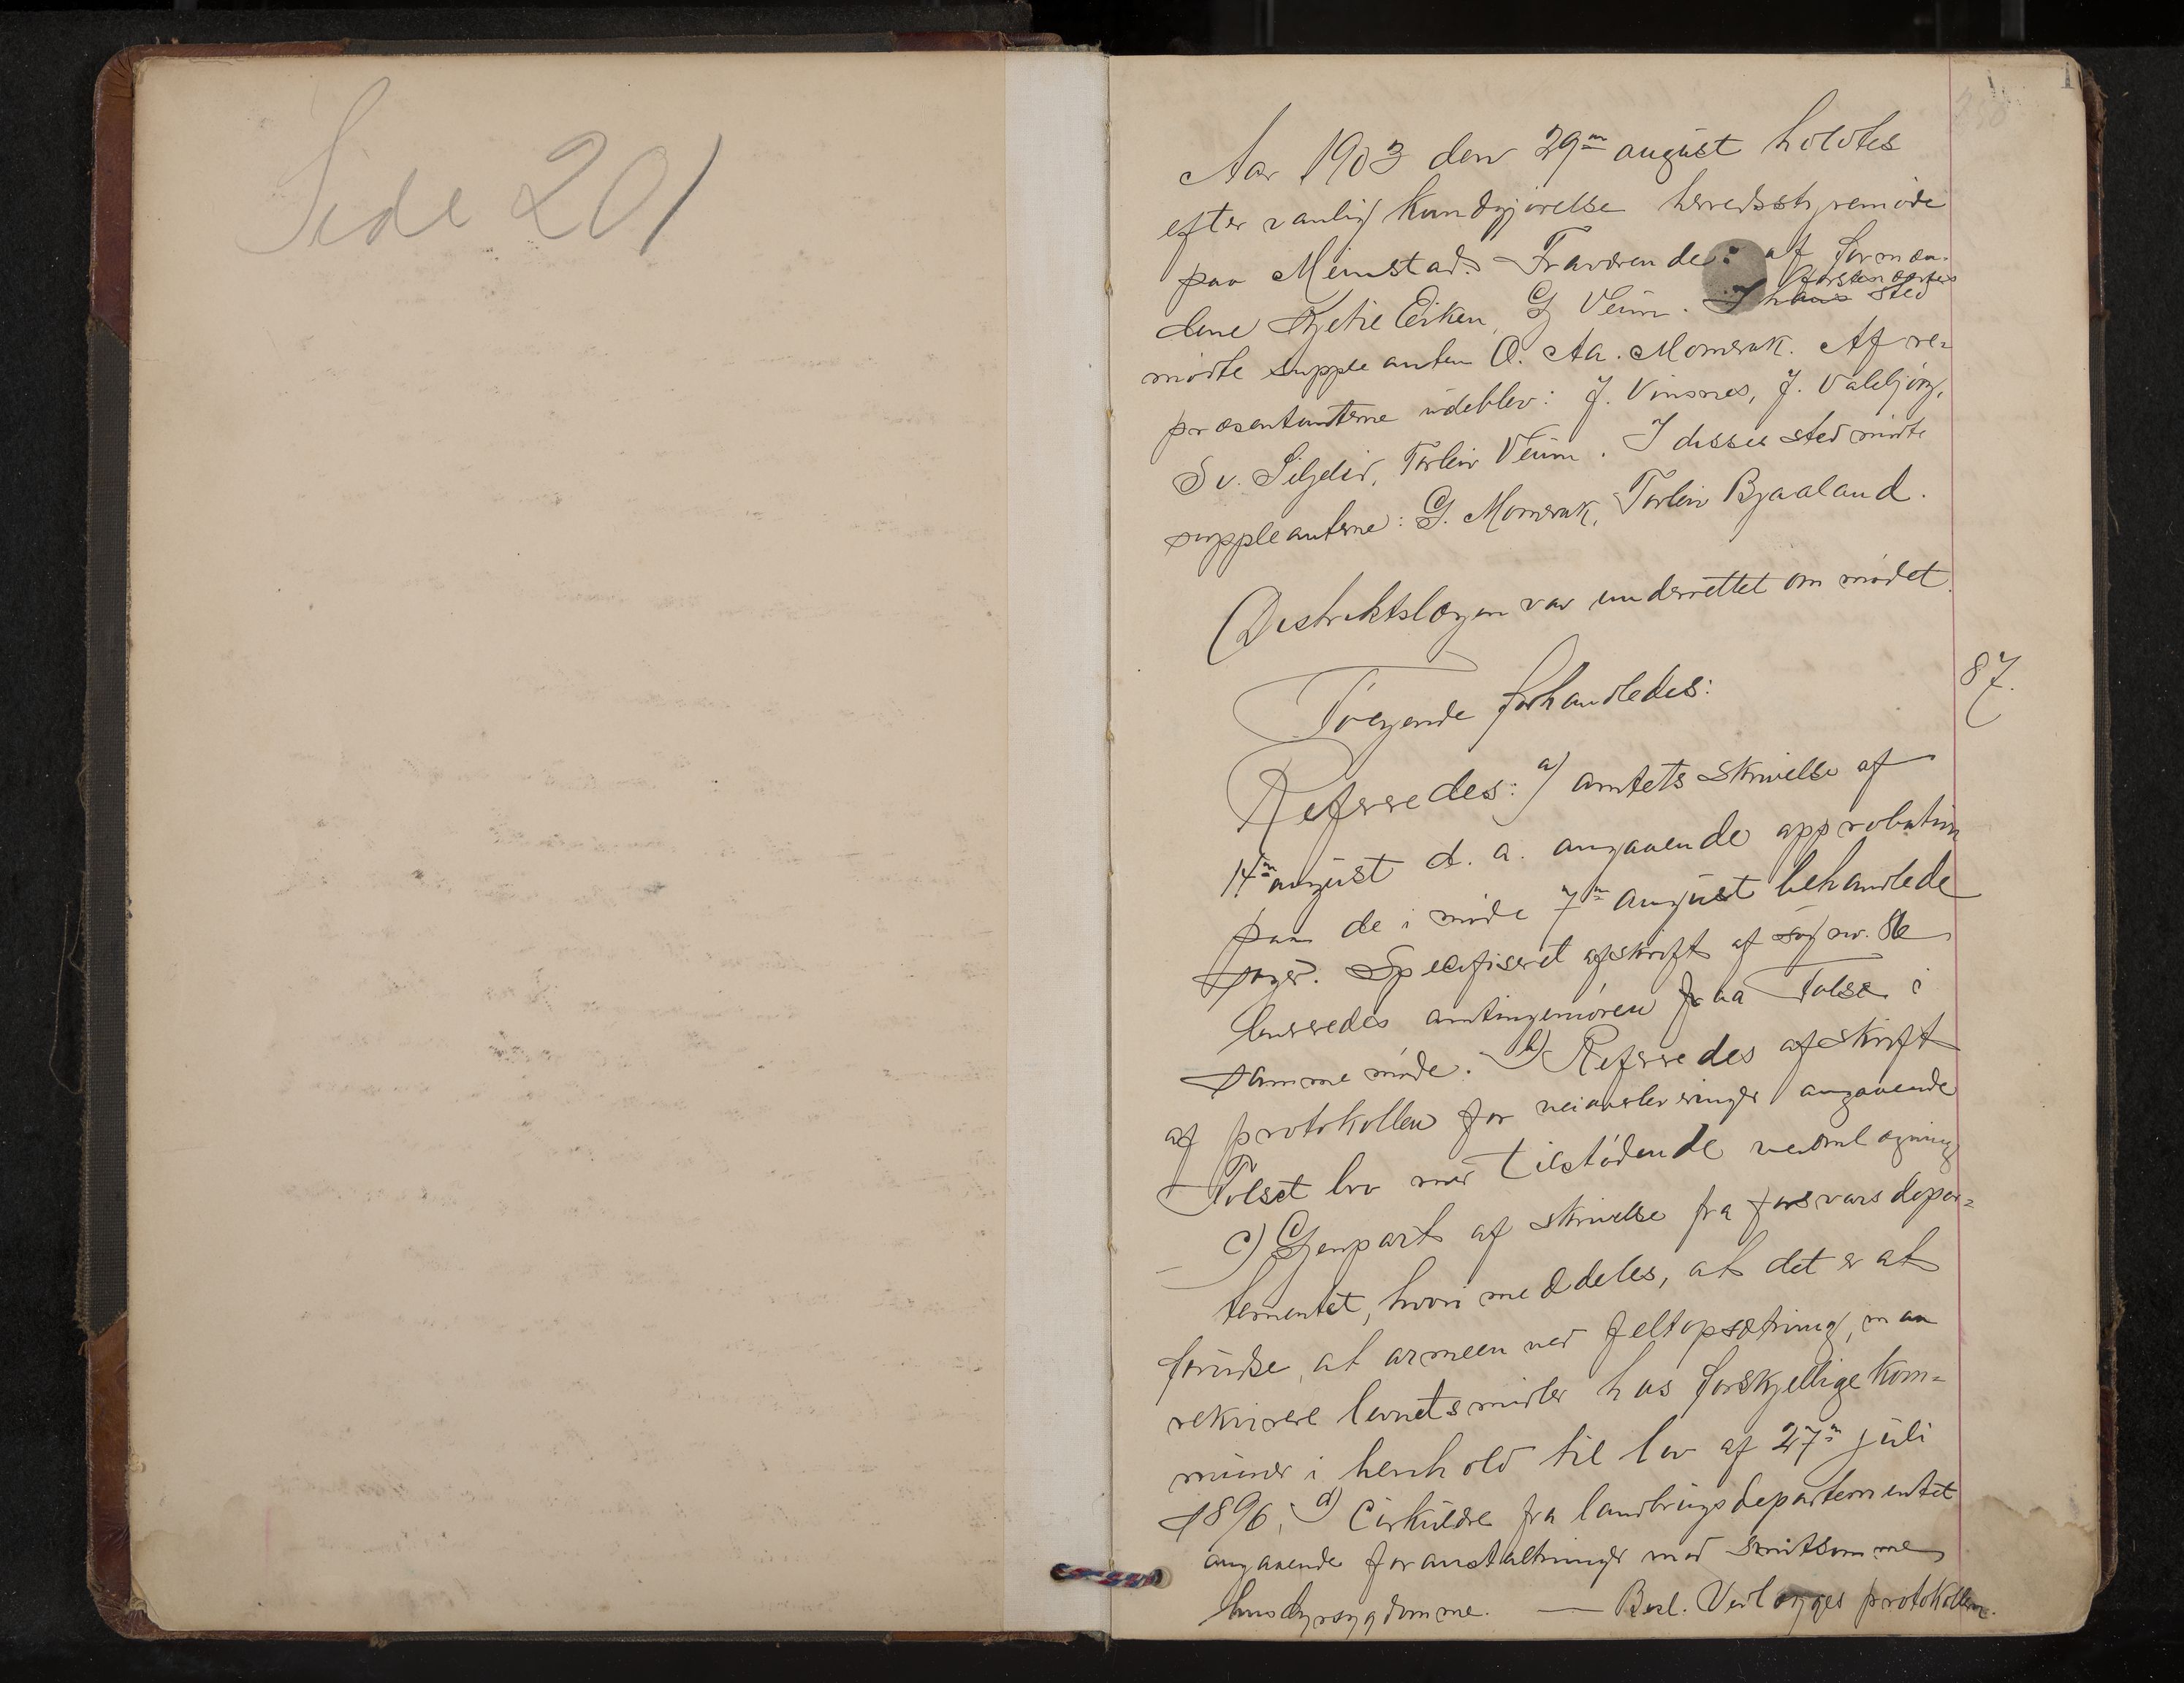 Side 201
1
Aar 1903 den 29m august holdtes
efter vanlig kundgjørelse herredsstyremøde
paa Meinstad. Fraværende: af formæn-
dene Kjetil Eiken, G Veum. I hans sted
mødte suppleanten O. Aa. Momrak. Af re-
præsentanterne udeblev: J. Vinsnes, J. Valebjørg,
Sv. Siljelid, Torleiv Veum. I disses sted mødte
suppleanterne: G. Momrak, Torleiv Bjaaland.
Distriktslægen var underrettet om mødet.
Følgende forhandledes:
87.
Refereredes: a) amtets skrivelse af
14m august d. a. angaaende approbation
paa de i møde 7m august behandlede
sager. Specifiseret afskrift af sag nr. 86
leveredes amtingeniøren fraa Folse i
samme møde. b) Refereredes afskrift
af protokollen for veiavleveringer angaaende
Folset bro med tilstødende veiomlægning
c) Gjenpart af skrivelse fra forsvarsdepar-
tementet, hvori meddeles, at det er at
forudse, at armeen ved feltopsætning, maa
rekvirere levnetsmidler hos forskjellige kom-
muner i henhold til lov af 27m juli
1896. d) Cirkulære fra landbrugsdepartementet
angaaende foranstaltninger mod smitsomme
husdyrsygdomme. — Besl. Vedlægges protokollen.